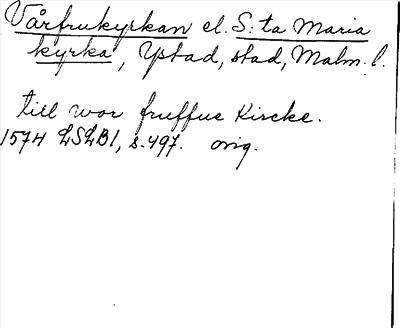 Vårfrukyrkan el. S:ta Maria
kyrka, Ystad, stad, Malm. l.
till wor fruffue Kircke.
1574 LSLB1, s. 497. orig.